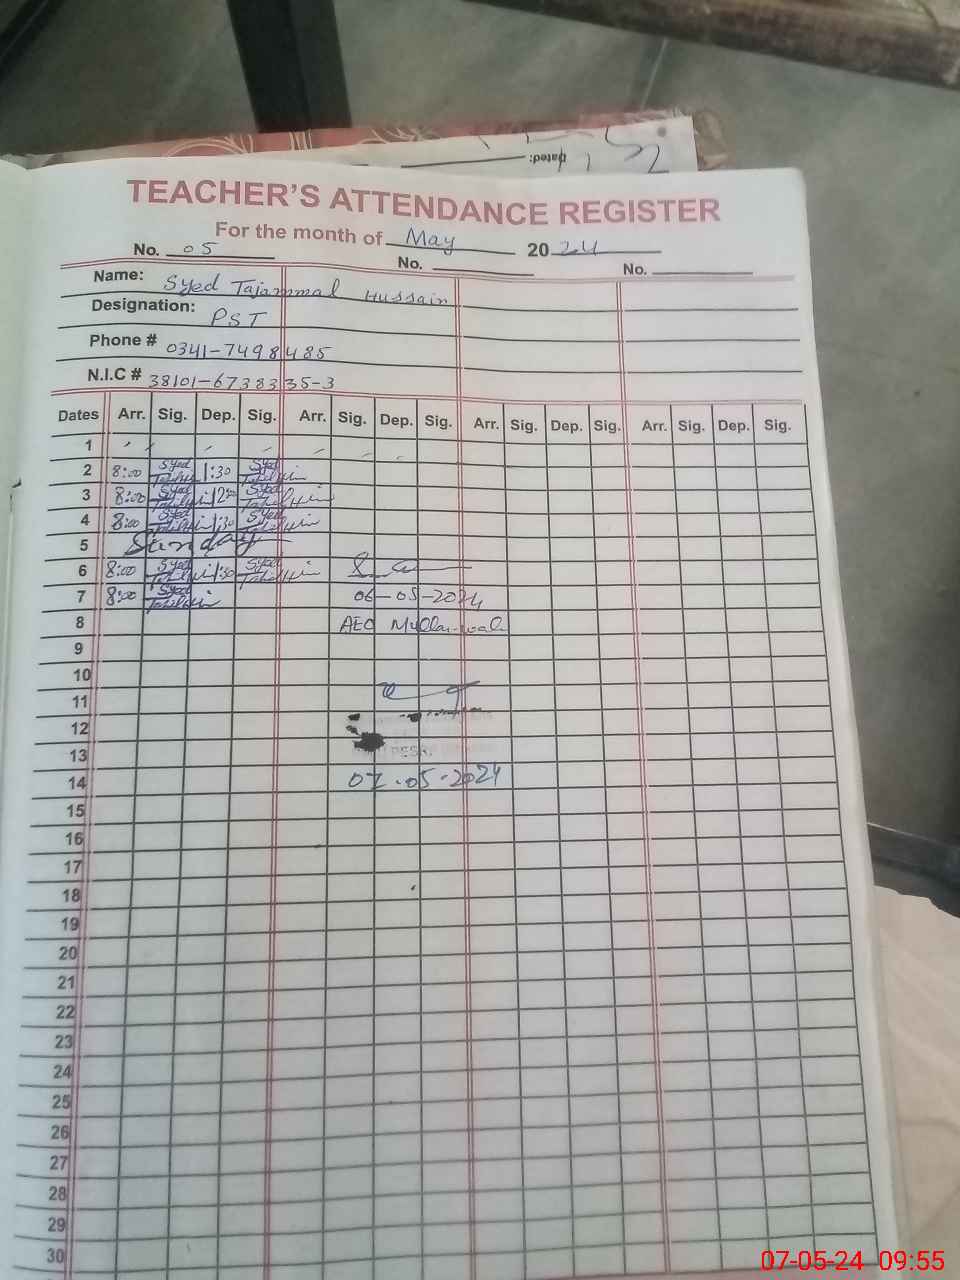 Dated:
TEACHER'S ATTENDANCE REGISTER
For the month of May 2024
No. 05 No. No.
Name: Syed Tajammal Hussain
Designation: PST
Phone # 0341-7498485
N.I.C # 38101-6738335-3
Dates Arr. Sig. Dep. Sig. Arr. Sig. Dep. Sig. Arr. Sig. Dep. Sig. Arr. Sig. Dep. Sig.
1
2 8:00 Syed 1:30 Syed
3 8:00 Syed Syed
4 8:00 Syed 1:30 Syed
5 Sunday
6 8:00 Syed 1:30 Syed
7 8:00 Syed 06-05-2024
8 AEO
9
10
11
12
13
14 07-05-2024
15
16
17
18
19
20
21
22
23
24
25
26
27
28
29
30
07-05-24 09:55